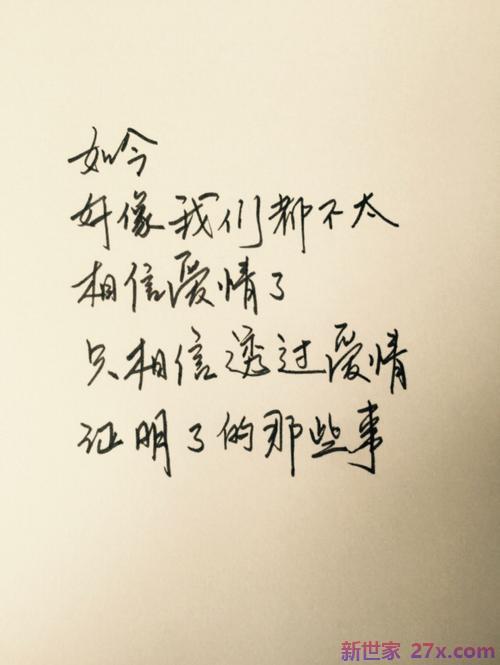 如今
好像我们都不太
相信爱情了
只相信透过爱情
证明了的那些事
新世家 27x.com